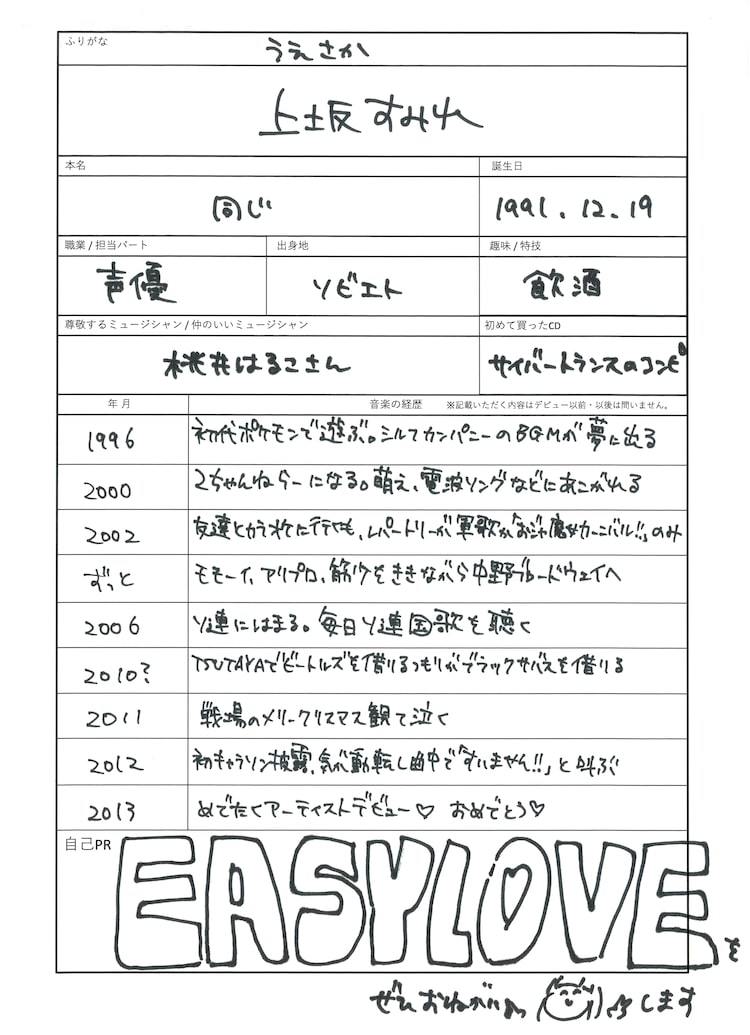 ふりがな
うえさか
上坂すみれ
本名
誕生日
同じ
1991.12.19
職業 / 担当パート
出身地
趣味 / 特技
声優
ソビエト
飲酒
尊敬するミュージシャン / 仲のいいミュージシャン
初めて買ったCD
桃井はるこさん
サイバートランスのコンピ
年 月
音楽の経歴 ※記載いただく内容はデビュー以前・以後は問いません。
1996 初代ポケモンで遊ぶ。シルフカンパニーのBGMが夢に出る
2000 2ちゃんねらーになる。萌え、電波ソングなどにあこがれる
2002 友達とカラオケに行くも、レパートリーが軍歌か「おジャ魔女カーニバル!!」のみ
ずっと モモーイ、アリプロ、筋少をききながら中野ブロードウェイへ
2006 ソ連にはまる。毎日ソ連国歌を聴く
2010? TSUTAYAでビートルズを借りるつもりがブラックサバスを借りる
2011 戦場のメリークリスマス観て泣く
2012 初キャラソン披露、気が動転し曲中で「すいません!!」と叫ぶ
2013 めでたくアーティストデビュー♡ おめでとう♡
自己PR
EASY LOVEを
ぜひおねがいします